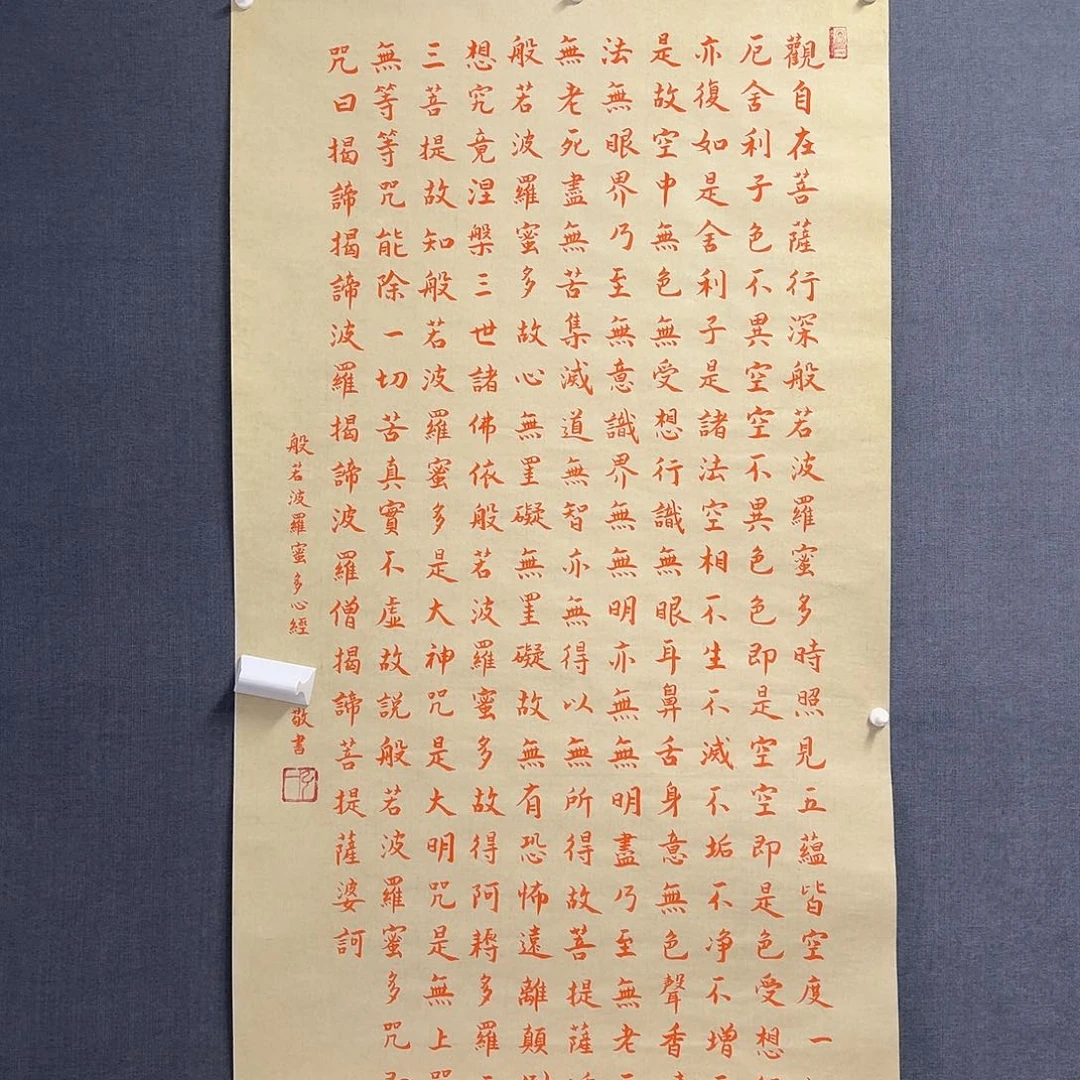 觀自在菩薩行深般若波羅蜜多時照見五蘊皆空度一
厄舍利子色不異空空不異色色即是空空即是色受想
亦復如是舍利子是諸法空相不生不滅不垢不净不增
是故空中無色無受想行識無眼耳鼻舌身意無色聲香
法無眼界乃至無意識界無無明亦無無明盡乃至無老
無老死盡無苦集滅道無智亦無得以無所得故菩提薩
般若波羅蜜多故心無罣礙無罣礙故無有恐怖遠離顛
想究竟涅槃三世諸佛依般若波羅蜜多故得阿耨多羅
三菩提故知般若波羅蜜多是大神咒是大明咒是無上
無等等咒能除一切苦真實不虛故説般若波羅蜜多咒
咒曰揭諦揭諦波羅揭諦波羅僧揭諦菩提薩婆訶
般若波羅蜜多心經 敬書